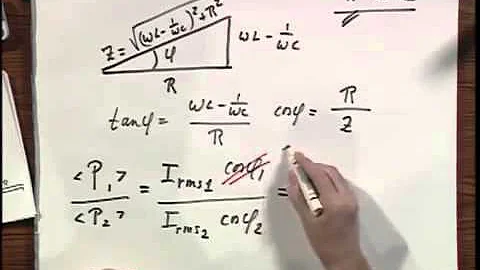 Z = √(ωL - 1/ωC)² + R²
φ
ωL - 1/ωC
R
tanφ = (ωL - 1/ωC)/R cosφ = R/Z
<P₁>/<P₂> = I rms1 cosφ₁ / I rms2 cosφ₂ =